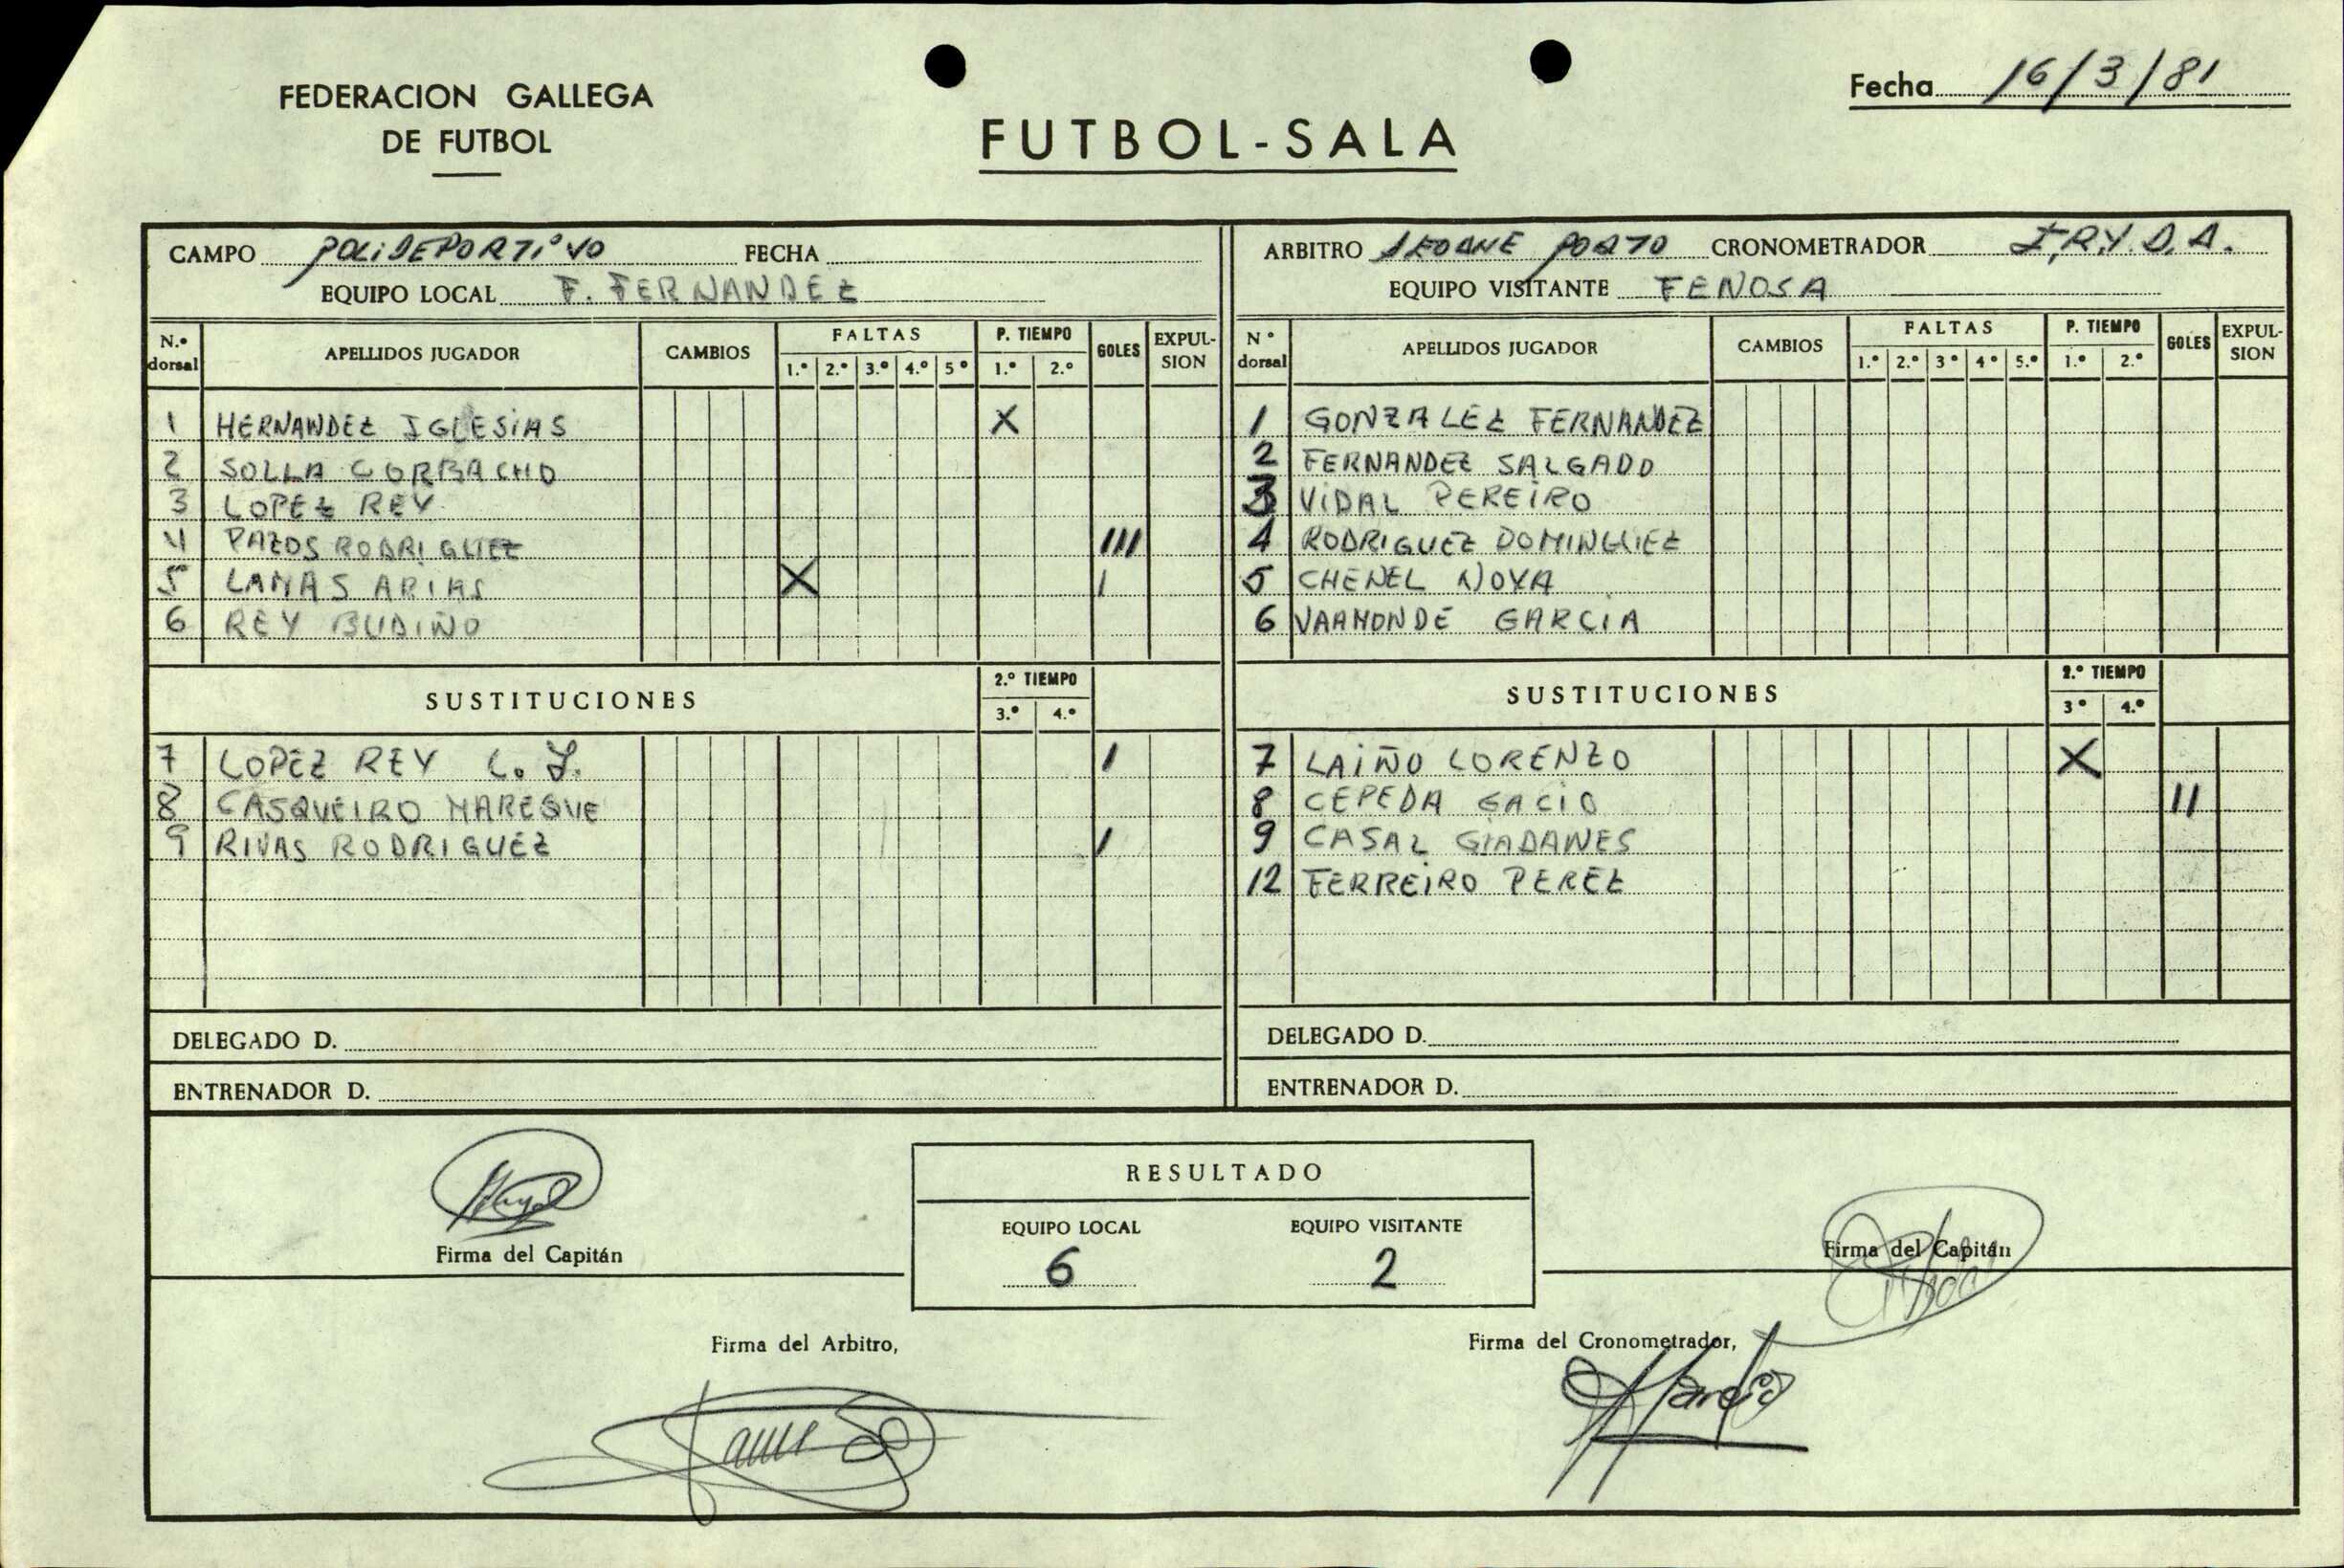 FEDERACION GALLEGA
DE FUTBOL
FUTBOL-SALA
Fecha 16/3/81
CAMPO POLIDEPORTIVO FECHA
EQUIPO LOCAL F. FERNANDEZ
N.º dorsal APELLIDOS JUGADOR CAMBIOS FALTAS 1.º 2.º 3.º 4.º 5º P. TIEMPO 1.º 2.º GOLES EXPUL-SION
1 HERNANDEZ IGLESIAS X
2 SOLLA CORBACHO
3 LOPEZ REY
4 PAZOS RODRIGUEZ III
5 LAMAS ARIAS X I
6 REY BUDIÑO
SUSTITUCIONES 2.º TIEMPO 3.º 4.º
7 LOPEZ REY C. J. I
8 CASQUEIRO MAREQUE
9 RIVAS RODRIGUEZ I
DELEGADO D.
ENTRENADOR D.
ARBITRO SEOANE PORTO CRONOMETRADOR I.R.Y.D.A.
EQUIPO VISITANTE FENOSA
Nº dorsal APELLIDOS JUGADOR CAMBIOS FALTAS 1.º 2.º 3º 4º 5.º P. TIEMPO 1.º 2.º GOLES EXPUL-SION
1 GONZALEZ FERNANDEZ
2 FERNANDEZ SALGADO
3 VIDAL PEREIRO
4 RODRIGUEZ DOMINGUEZ
5 CHENEL NOYA
6 VAAMONDE GARCIA
SUSTITUCIONES 2.º TIEMPO 3º 4.º
7 LAIÑO LORENZO X
8 CEPEDA GACIO II
9 CASAL GIADANES
12 FERREIRO PEREZ
DELEGADO D.
ENTRENADOR D.
Firma del Capitán
RESULTADO
EQUIPO LOCAL EQUIPO VISITANTE
6 2
Firma del Capitán
Firma del Arbitro,
Firma del Cronometrador,